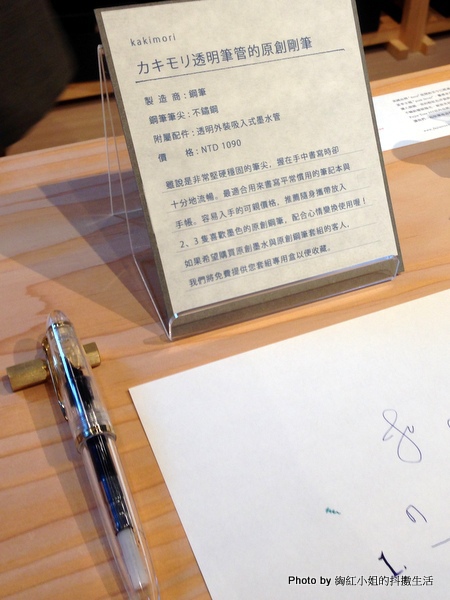 kakimori
カキモリ透明筆管的原創剛筆
製 造 商：鋼筆
鋼筆筆尖：不鏽鋼
附屬配件：透明外裝吸入式墨水管
價 格：NTD 1090
雖說是非常堅硬穩固的筆尖，握在手中書寫時卻
十分地流暢。最適合用來書寫平常慣用的筆記本與
手帳。容易入手的可親價格，推薦隨身攜帶放入
2、3 隻喜歡墨色的原創鋼筆，配合心情變換使用喔！
如果希望購買原創墨水與原創鋼筆套組的客人，
我們將免費提供您套組專用盒以便收藏。
Photo by 絢紅小姐的抖擻生活